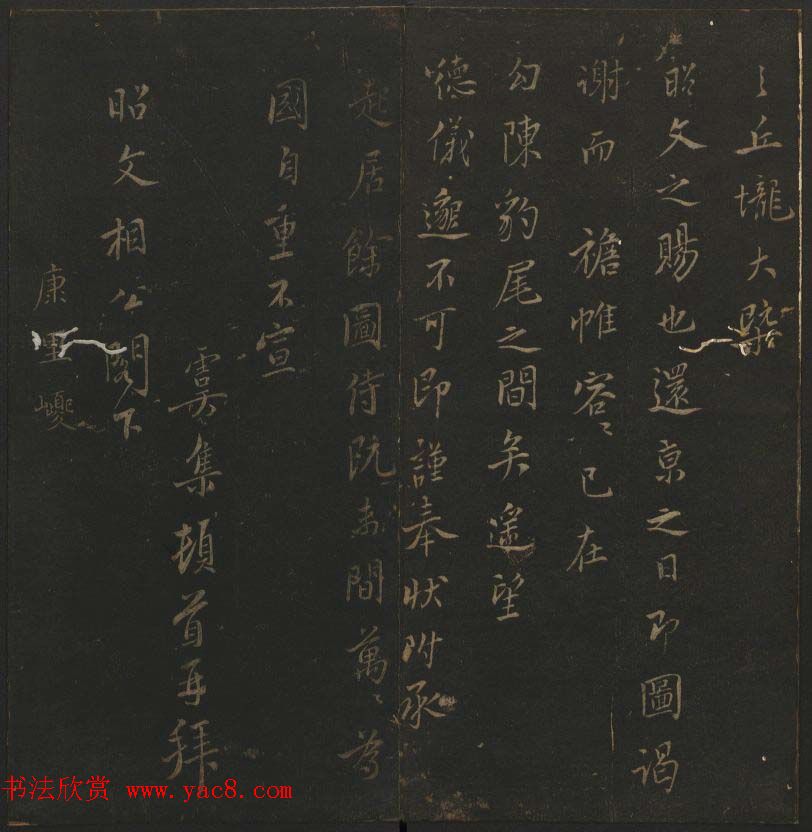 之丘壠大槩
昭文之賜也還京之日即圖謁
謝而襜帷容〻已在
勾陳豹尾之間矣遥望
德儀邈不可即謹奉状附承
起居餘圖侍既未間萬〻为
國自重不宣
虞集頓首再拜
昭文相公閣下
康里巙
书法欣赏 www.yac8.com